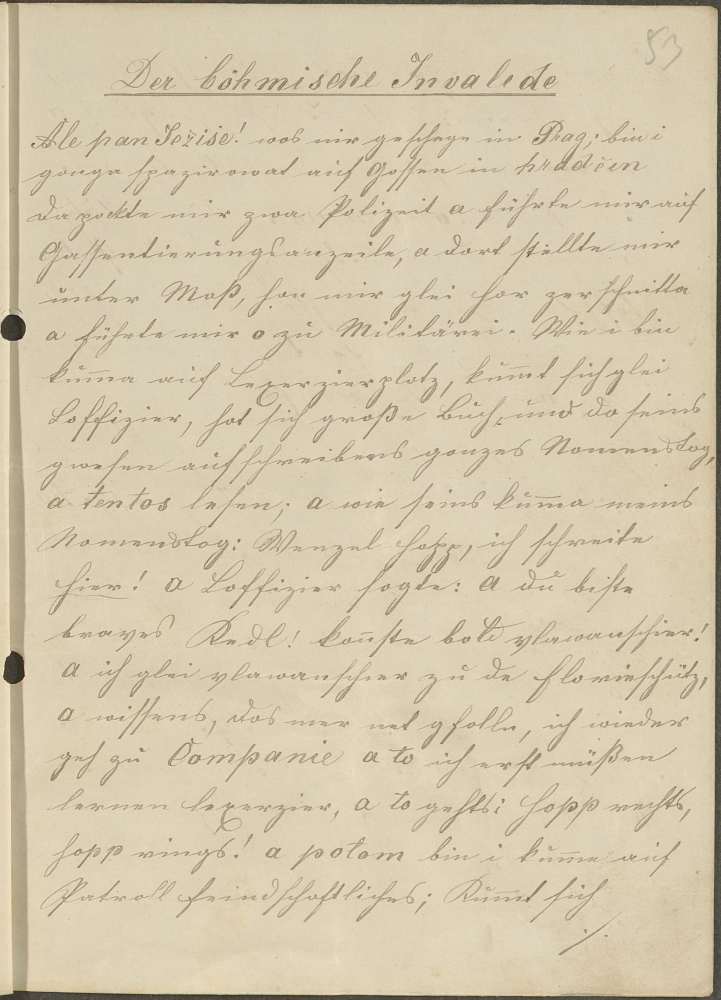 53
Der böhmische Invalide
Ale pan Ježiše! wos mir geschege in Prag; bin i
gonga spazirowat auf Gossen in hradčin
Da pockte mir zwa Polizeit a führte mir auf
Gassentierungsanzeile, a dort stellte mir
unter Maß, hor mir glei hor zerschnitta
a führte mir o zu Militärei. Wie i bin
kumma auf Lexerzierplotz, kummt sich glei
Loffizier, hot sich große Buch, und do seins
gwesen aufschreibens gonzes Nomenstog,
a tentos lesen; a wie seins kumma meins
Nomenstog: Wenzel Hopp, ich schreite
hier! a Loffizier sogte: A du biste
braves Kedl! konnste bold vlawanschier!
A ich glei vlawanschier zu de florieschütz,
a wissens, dos mer net gfolln, ich wieder
geh zu Companie a to ich erst müßen
lernen lexerzier, a to gehts: hopp rechts,
hopp rings! a potom bin i kumme auf
Patroll feindschaftliches; Kummt sich
./.